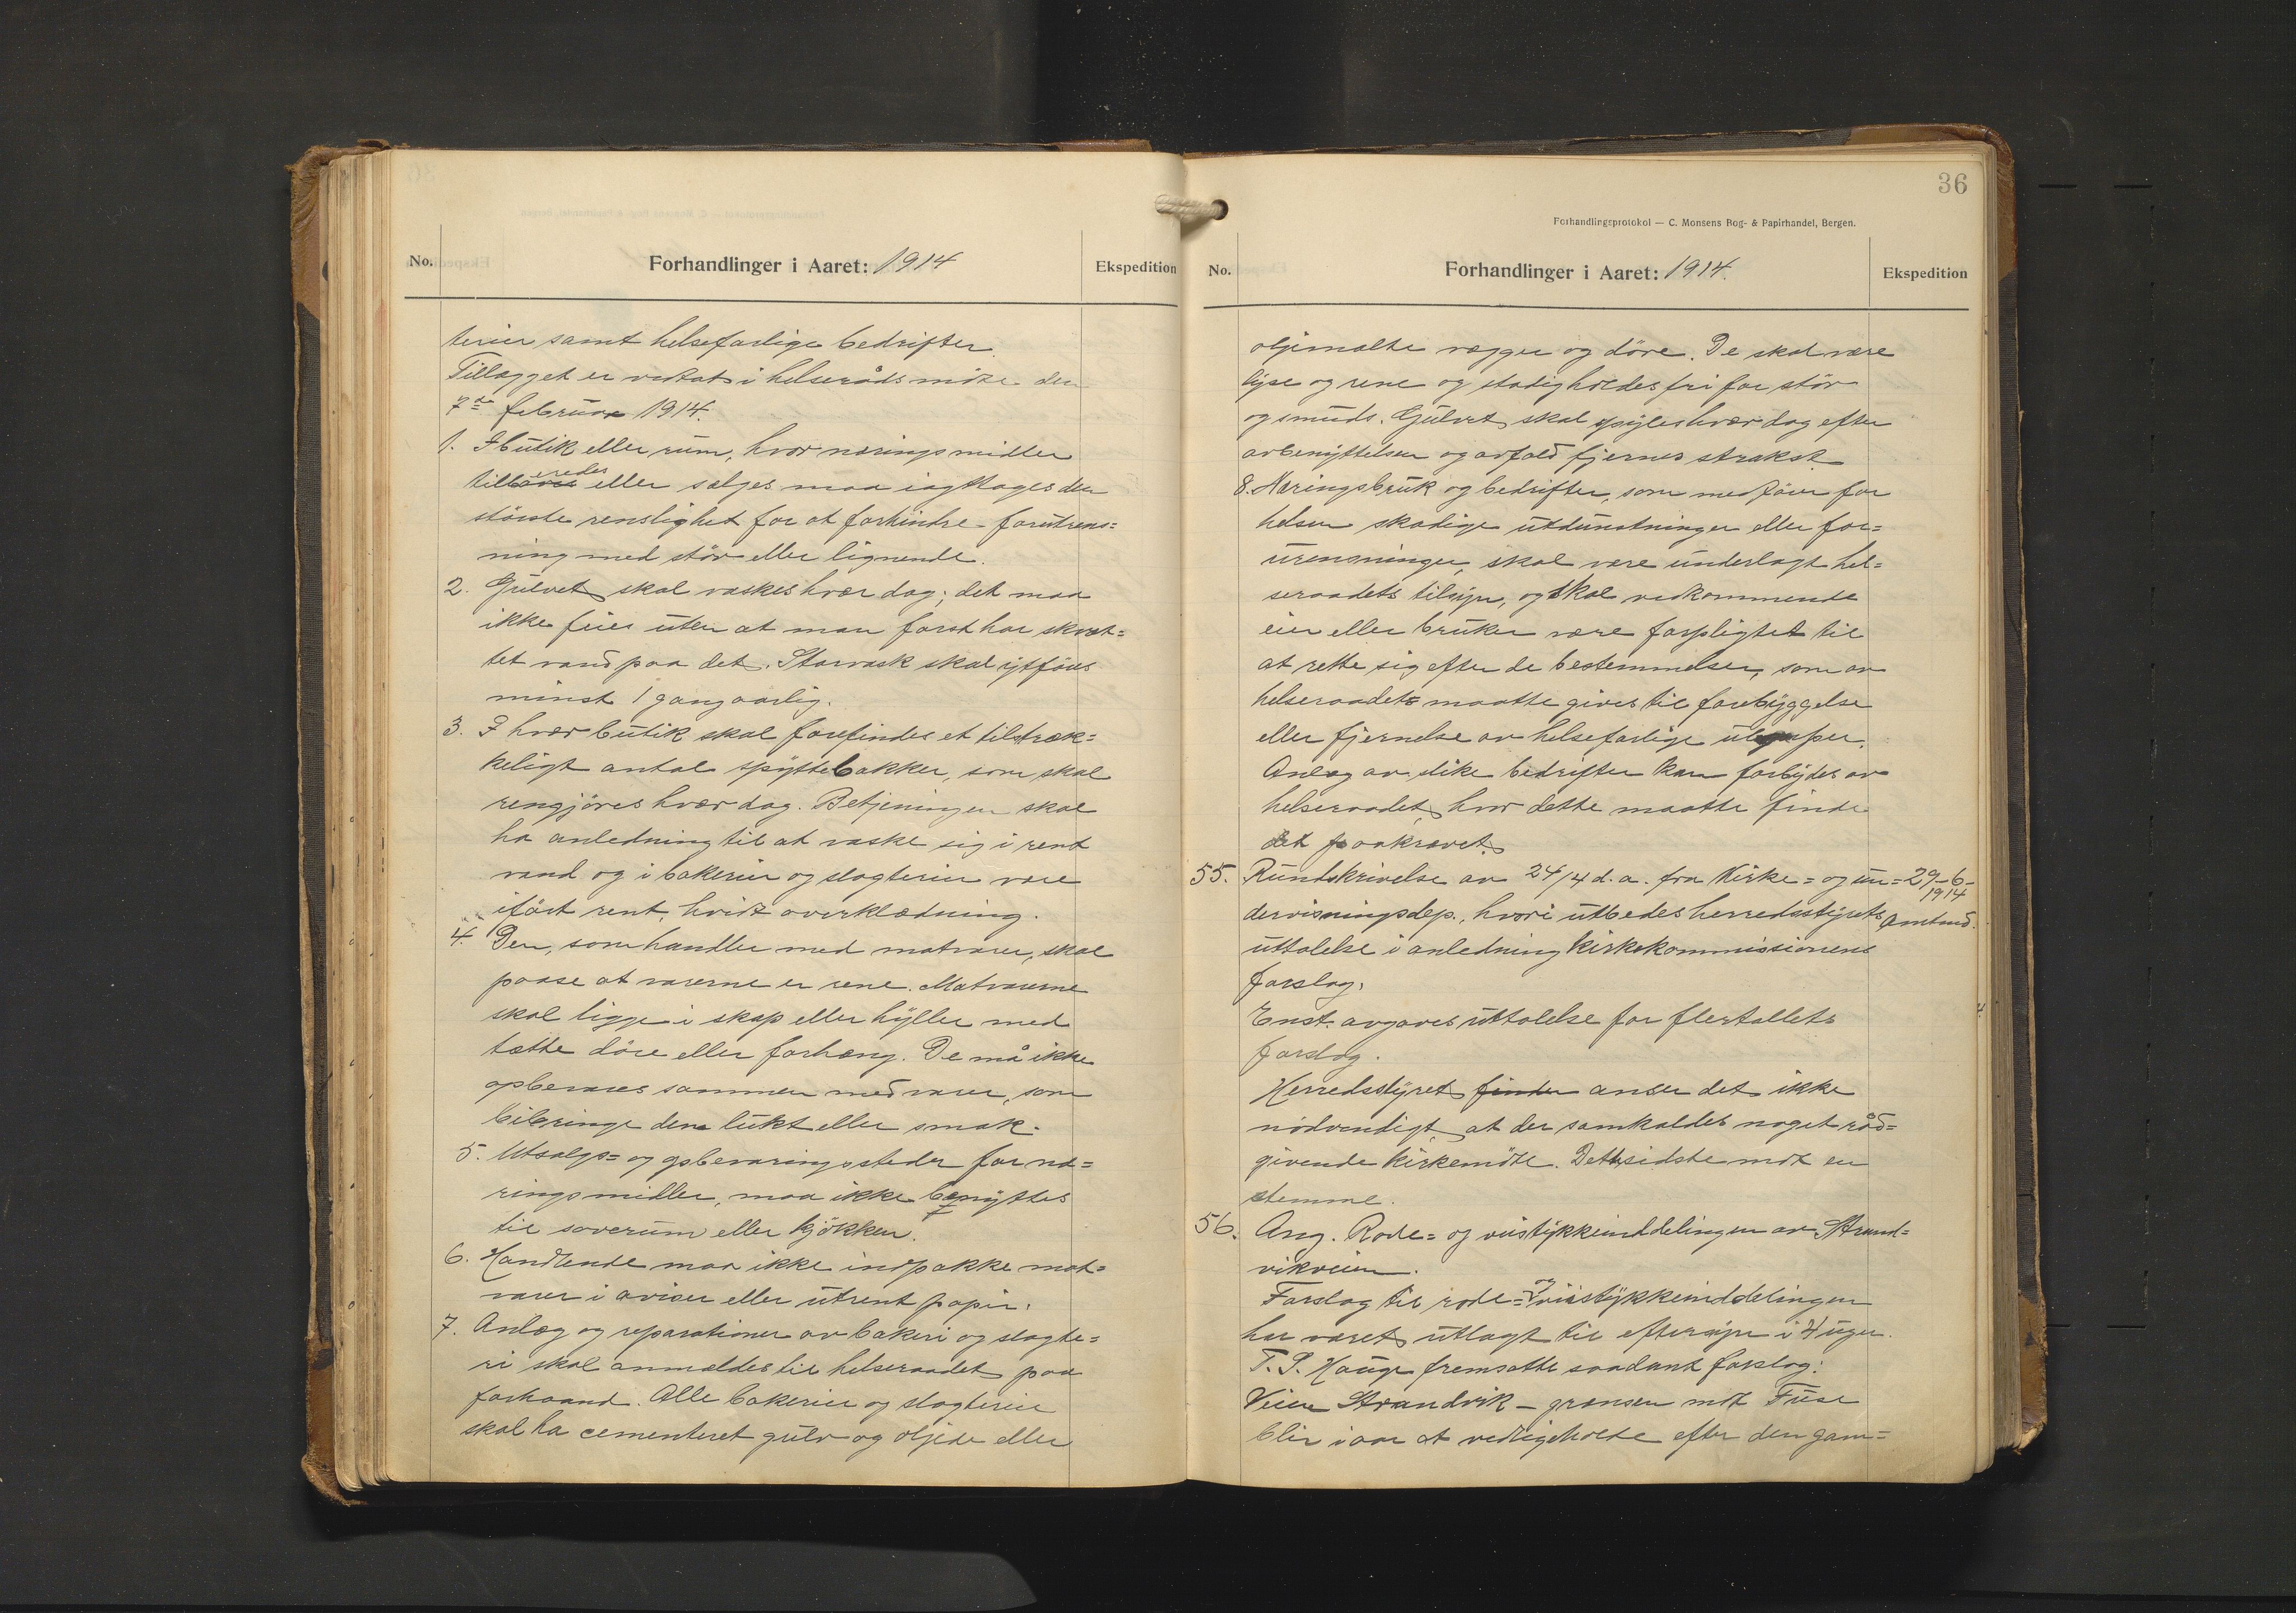 No.
Forhandlinger i Aaret: 1914
Ekspedition
terier samt helsefarlige bedrifter.
Tillægget er vedtat i helserådsmöte den
7de februar 1914.
1. I butik eller rum, hvor næringsmidler
tilberedes eller sælges maa iagttages den
störste renslighet for at forhindre forurens=
ning med stöv eller lignende.
2. Gulvet skal vaskes hver dag; det maa
ikke feies uten at man först har skvæt=
tet vand paa det. Storvask skal utföres
minst 1 gang aarlig.
3. I hver butik skal forefindes et tilstræk=
keligt antal spyttebakker, som skal
rengjöres hver dag. Betjeningen skal
ha anledning til at vaske sig i rent
vand og i bakerier og slagterier være
ifört rent, hvidt overklædning.
4. Den, som handler med matvarer, skal
paase at varerne er rene. Matvarerne
skal ligge i skap eller hyller med
tætte döre eller forhæng. De må ikke
opbevares sammen med varer, som
bibringe dem lukt eller smak.
5. Utsalgs= og opbevaringssteder for næ=
ringsmidler, maa ikke benyttes
til soverum eller kjökken.
6. Handlende maa ikke indpakke mat=
varer i aviser eller urent papir.
7. Anlæg og reparationer av bakeri og slagte=
ri skal anmeldes til helseraadet paa
forhaand. Alle bakerier og slagterier
skal ha cementeret gulv og oljede eller
36
Forhandlingsprotokol — C. Monsens Bog- & Papirhandel, Bergen.
No.
Forhandlinger i Aaret: 1914.
Ekspedition
oljemalte vægger og döre. De skal være
lyse og rene og stadig holdes fri for stöv
og smuds. Gulvet skal spyles hver dag efter
avbenyttelsen og avfald fjernes strakst.
8. Næringsbruk og bedrifter, som medförer for
helsen skadige utdunstninger eller for=
urensninger, skal være underlagt hel=
seraadets tilsyn, og skal vedkommende
eier eller bruker være forpligtet til
at rette sig efter de bestemmelser, som av
helseraadet maatte gives til forebyggelse
eller fjernelse av helsefarlige ulemper.
Anlæg av slike bedrifter kan forbydes av
helseraadet, hvor dette maatte finde
det paakrævet.
55. Rundskrivelse av 24/4 d. a. fra Kirke= og un= 29-6-
1914
dervisningsdep., hvori utbedes herredsstyrets Amtmd.
uttalelse i anledning kirkekommissionens
forslag.
Enst. avgaves uttalelse for flertallets
forslag.
Herredsstyret finder anser det ikke
nödvendigt, at der samkaldes noget råd=
givende kirkemöte. Dette sidste mot en
stemme.
56. Ang. Rode= og veistykkeinddelingen av Strand=
vikveien.
Forslag til rode= og veistykkeinddelingen
har været utlagt til eftersyn i 4 uger.
T. S. Hauge fremsatte saadant forslag:
Veien Strandvik – grænsen mot Fuse
blir i aar at vedligeholde efter den gam=